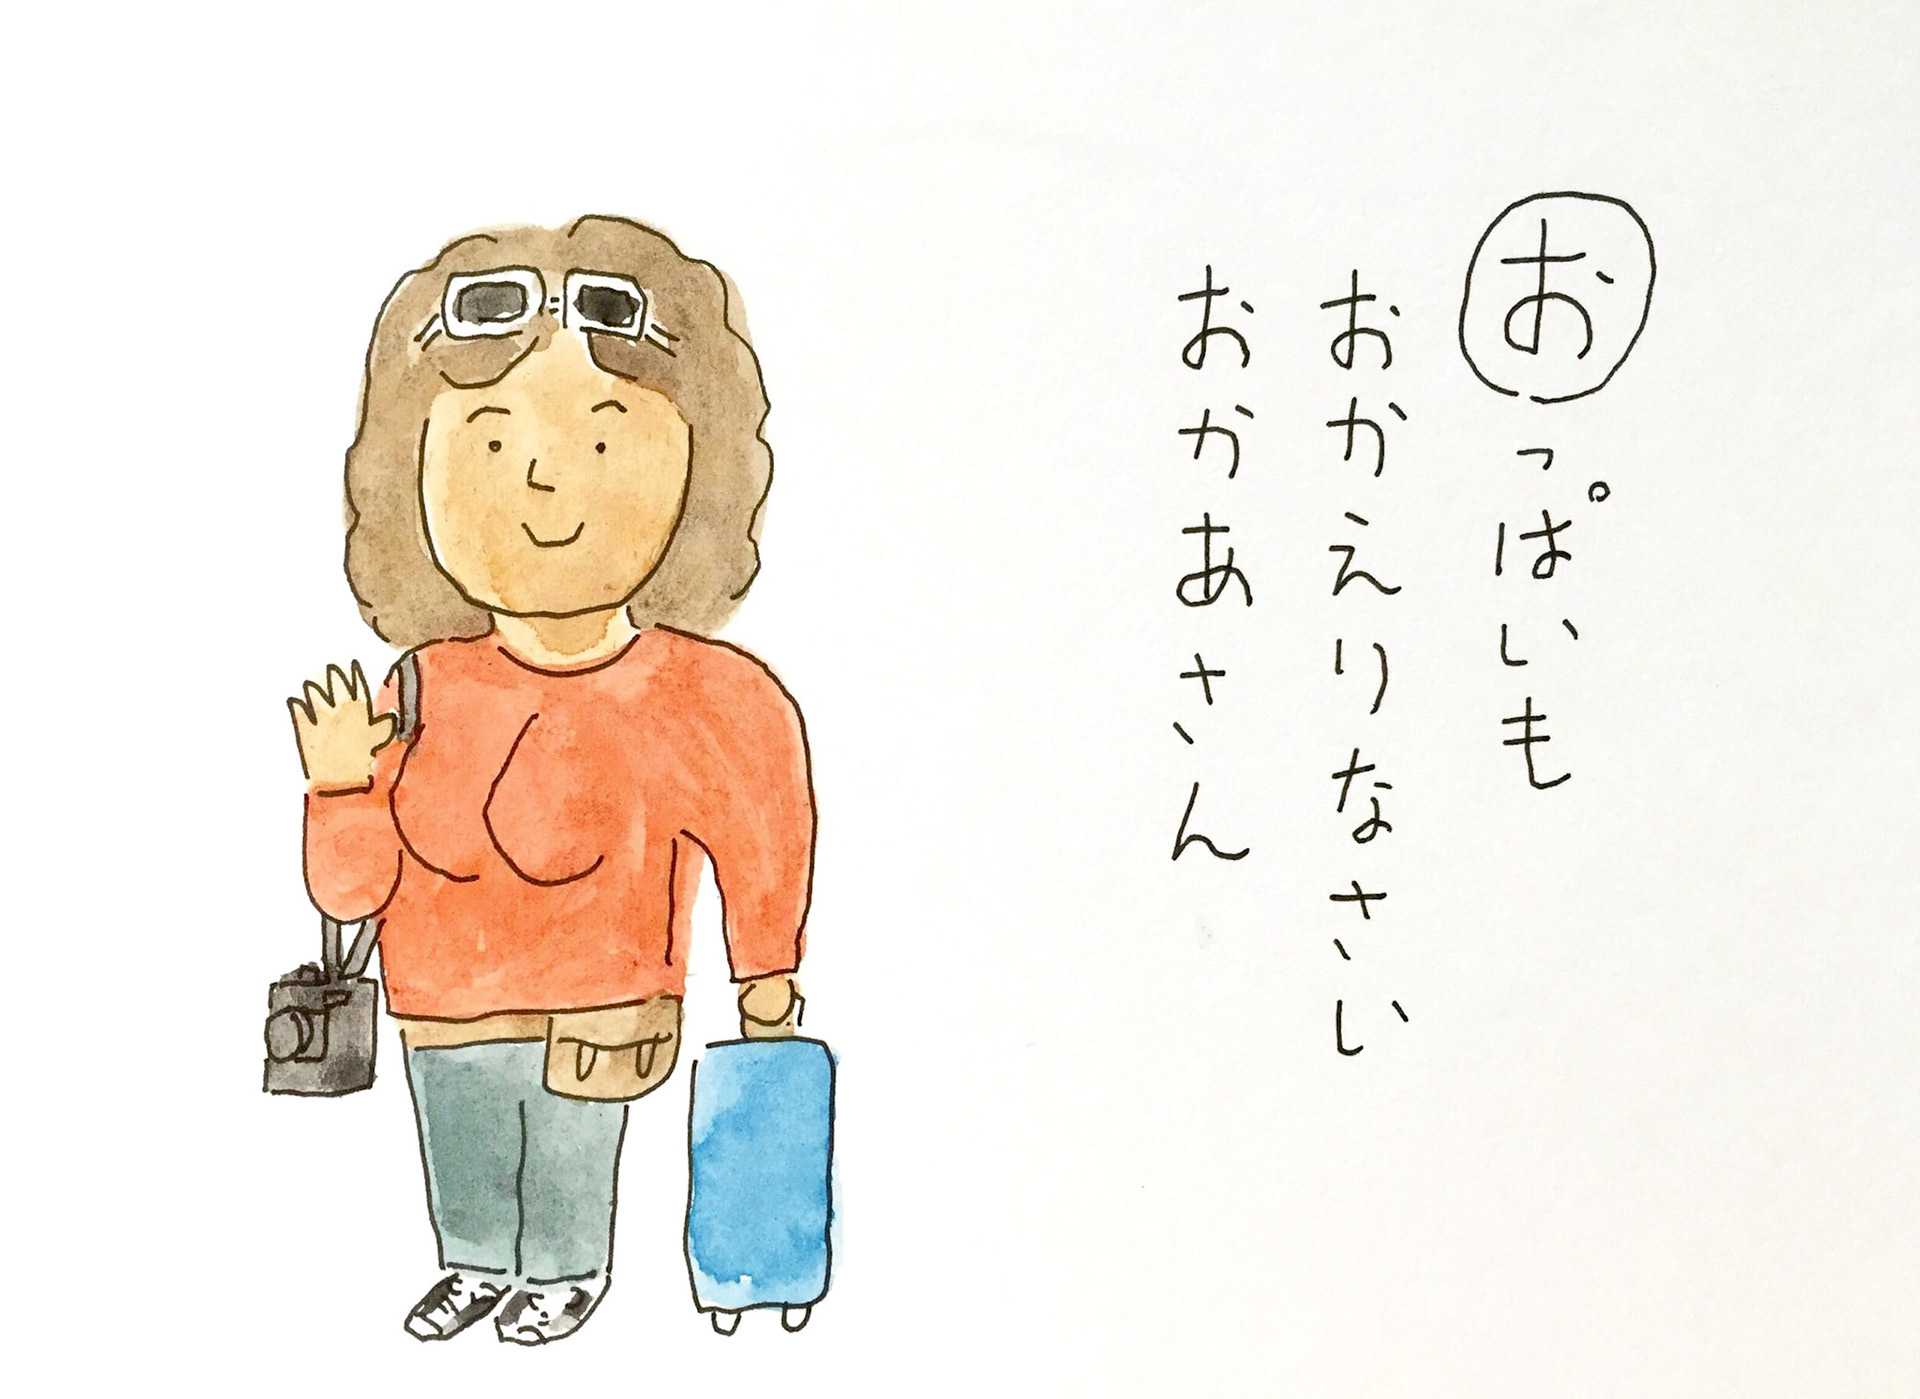 おっぱいも
おかえりなさい
おかあさん